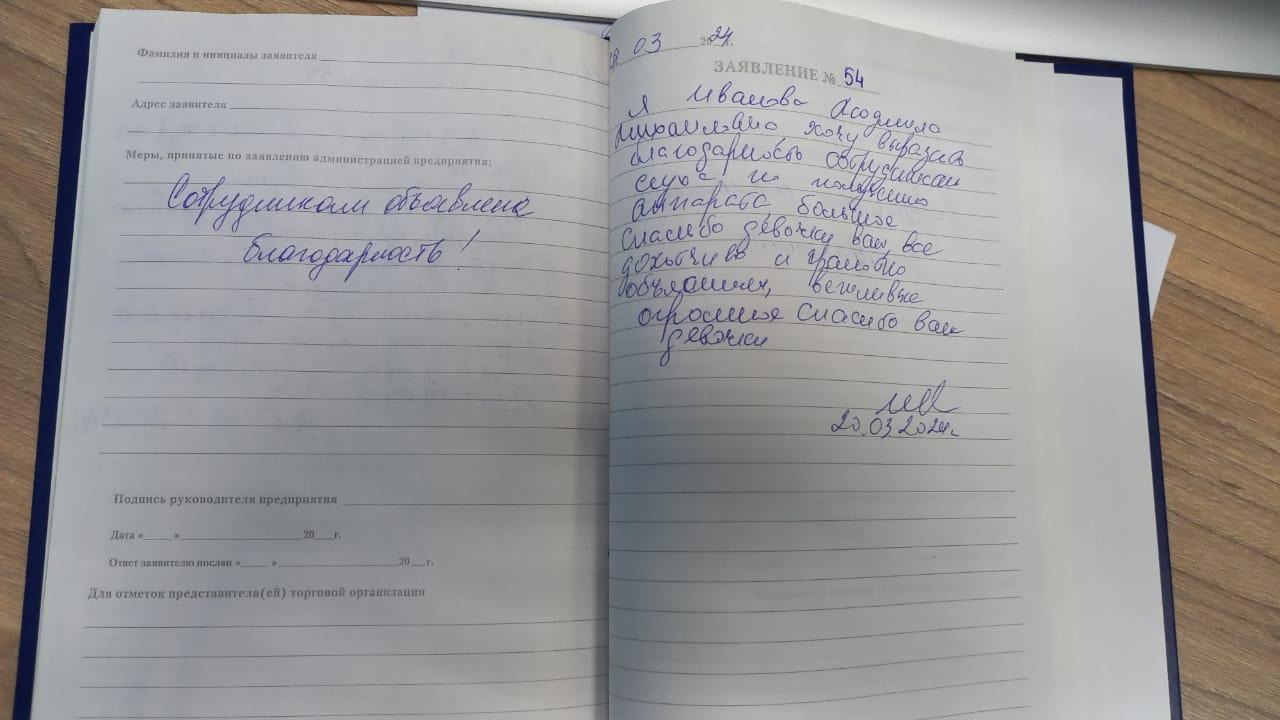 Фамилия и инициалы заявителя
Адрес заявителя
Меры, принятые по заявлению администрацией предприятия:
Сотрудникам объявлена
благодарность!
Подпись руководителя предприятия
Дата «___» ___ 20__г.
Ответ заявителю послан «___» ___ 20__г.
Для отметок представителя(ей) торговой организации
03 2024г.
ЗАЯВЛЕНИЕ № 54
Я Иванова Людмила
Михайловна хочу выразить
благодарность сотрудникам
слуха по получению
аппарата большое
спасибо девочки вам все
доходчиво и грамотно
объяснили, вежливые
огромное спасибо вам
девочки
20.03.2024г.